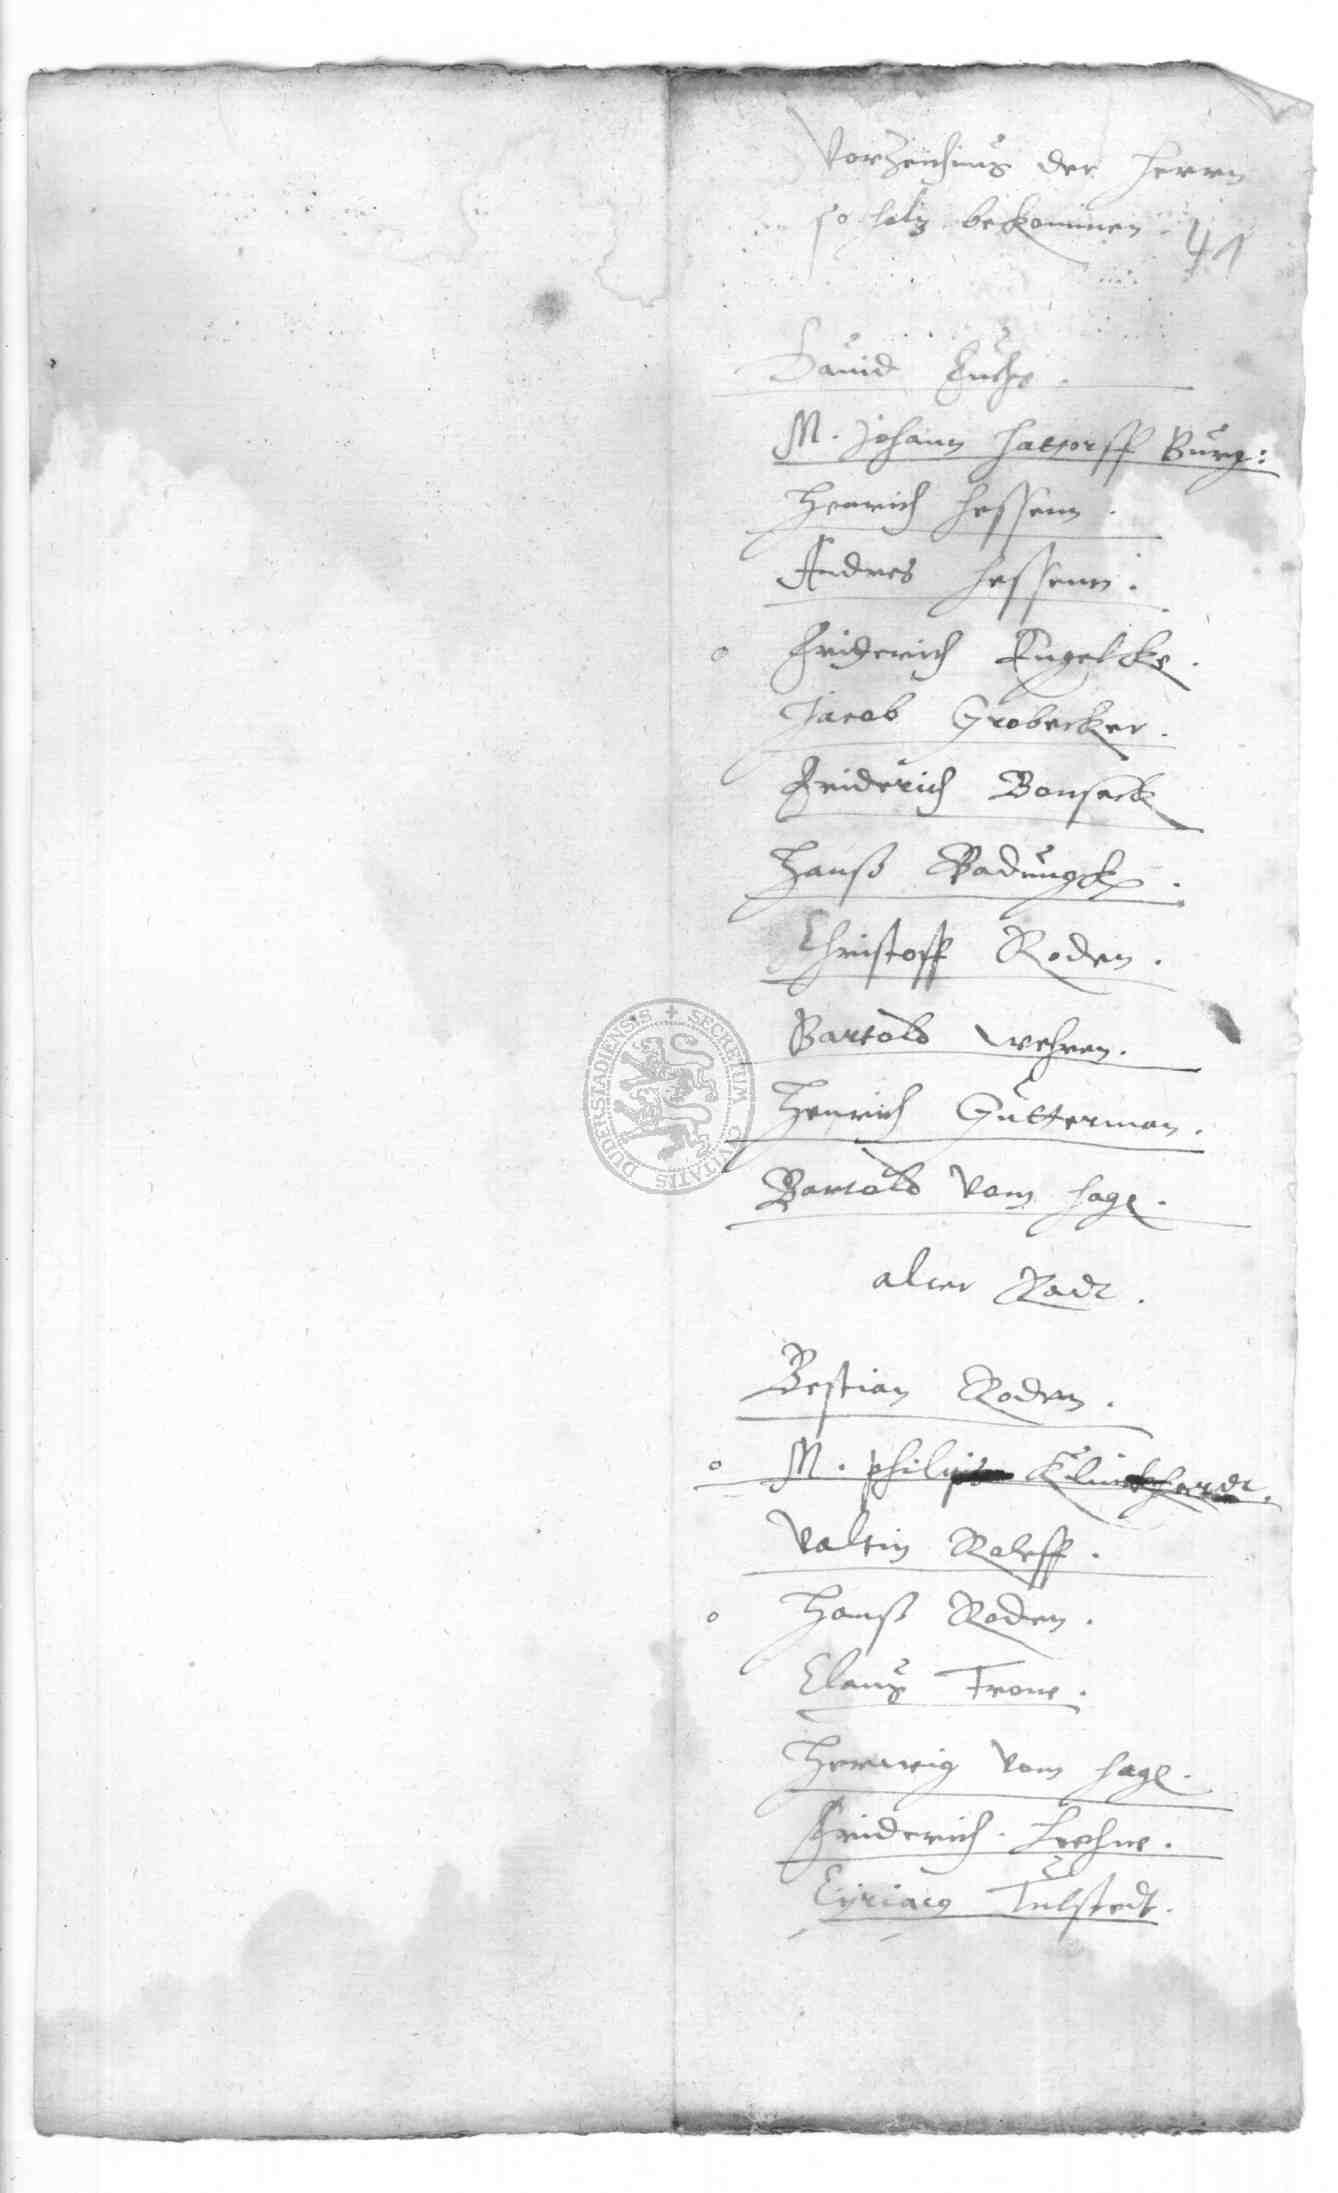 Vorzeichnus der Herrn
so holtz bekommen
41
Dauid Fuchs.
M. Johann Hattorff Burg:
Henrich Hessenn.
Andres Hessenn.
o Friderich Engelcke.
Jacob Grobecker.
Friderich Bonsack
Hanß Badungck.
Christoff Roden.
Bartold Wehren.
Henrich Gutterman.
Bartold vom Hage.
alter Radt.
Bestian Roden.
o M. Philips Klinckhardt.
Valtin Roleff.
o Hanß Roden.
Claus Trone.
Herwig vom Hage.
Friderich Lechne.
Cyriacg Tulstedt.
SECRETUM CIVITATIS DUDERSTADIENSIS